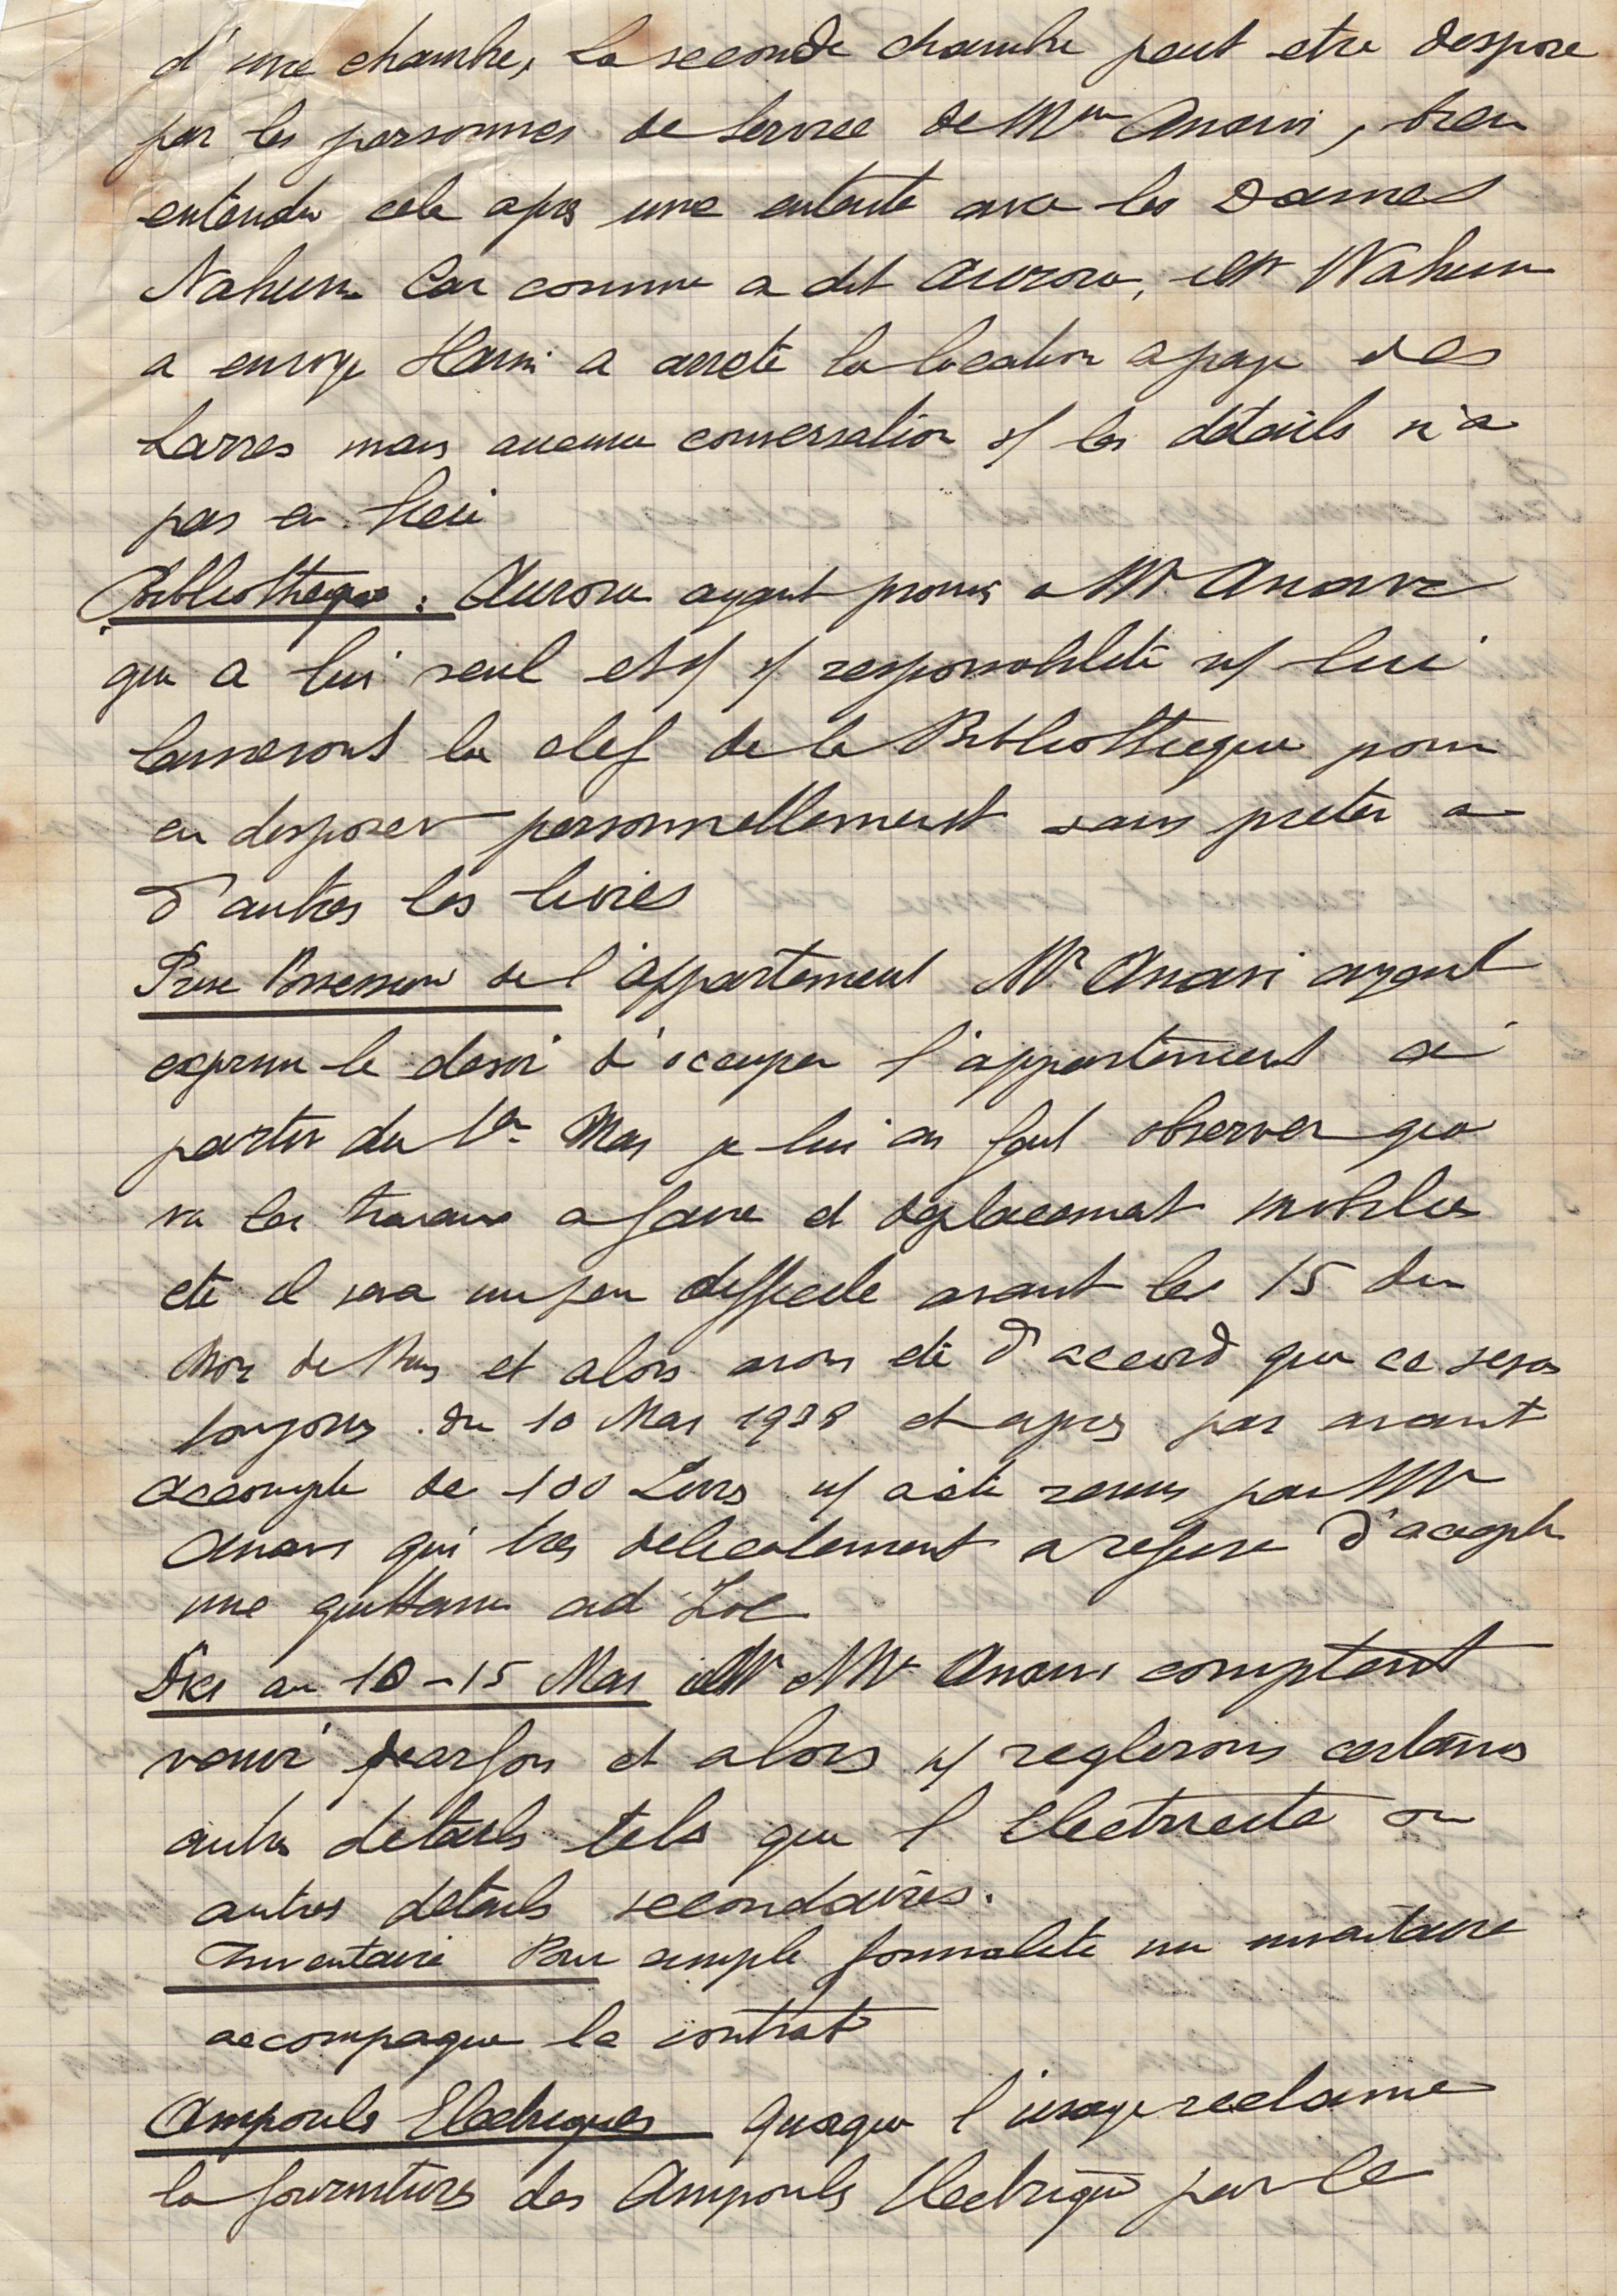 d'une chambre, La seconde chambre peut etre dispose
par les personnes de Service de Mme Anavi, bien
entendu cela apres une entente avec les Dames
Nahum Car comme a dit Aurora, Mr Nahum
a envoye Haim a arreté la location a paye des
Larres mais aucune conversation s/ les détails n'a
pas eu lieu
Bibliotheque : Aurora ayant promis a Mr Anavi
que a lui seul et s/ s/ responsabilité n/ lui
laisserons la clef de la Bibliotheque pour
en disposer personnellement sans preter a
d'autres les livres
Prise Possession de l'appartement Mr Anavi ayant
exprime le desir d'occuper l'appartement a
partir du 1er Mai je lui ai fait observer que
vu les travaux a faire et deplacement mobilier
etc il sera un peu difficile avant le 15 du
Mois de Mai et alors avons eté d'accord que ce sera
toujours du 10 Mai 1938 et apres pas avant
Accompte de 100 Livres n/ a été remis par Mr
Anavi qui tres delicatement a refuse d'accepte
une quittance ad hoc
D'ici au 10-15 Mai Mr Anavi comptent
venir parfois et alors n/ reglerons certains
autres details tels que l'Electricité ou
autres details secondaires.
Inventaire Pour simple formalité un inventaire
accompagne le contrat
Ampouls Electriques Quoique l'usage reclame
la fourniture des Ampouls Electrique par le